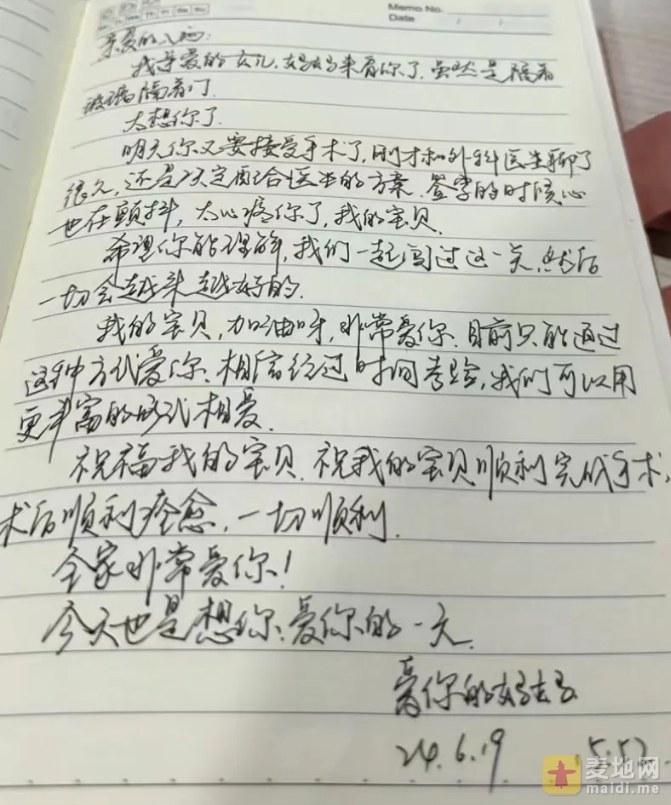 Memo No.
Date
Mo Tu We Th Fr Sa Su
亲爱的
我亲爱的女儿,妈妈来看你了,虽然是隔着
玻璃隔着门.
太想你了.
明天你又要接受手术了,刚才和外科医生聊了
很久,还是决定配合医生的方案.签字的时候心
也在颤抖,太心疼你了,我的宝贝.
希望你能理解,我们一起闯过这一关,然后
一切会越来越好的.
我的宝贝,加油呀,非常爱你.目前只能通过
这种方式爱你、相信经过时间考验,我们可以用
更丰富的形式相爱.
祝福我的宝贝.祝我的宝贝顺利完成手术,
术后顺利痊愈,一切顺利.
全家非常爱你!
今天也是想你、爱你的一天.
爱你的妈妈
24.6.19 15:52
麦地网
maidi.me